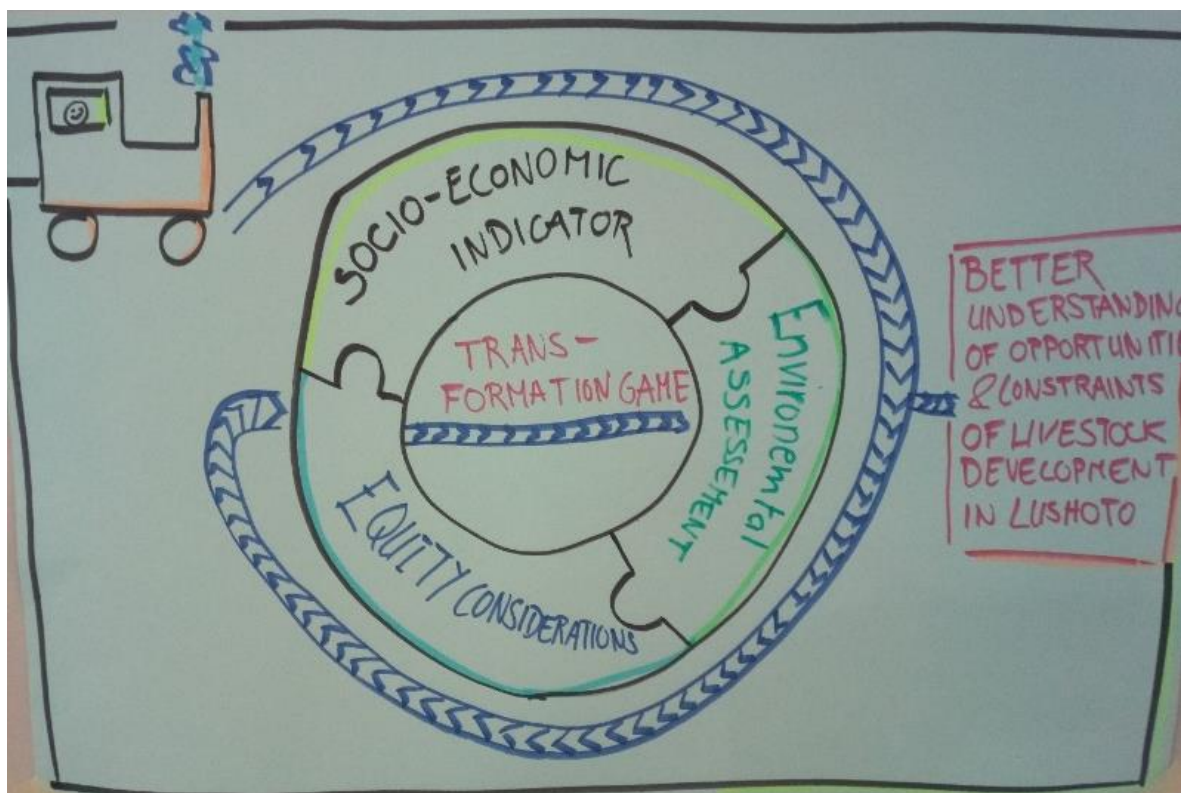 SOCIO-ECONOMIC
INDICATOR
TRANS-
FORMATION GAME
Environemtal
ASSESSEMENT
EQUITY CONSIDERATIONS
BETTER
UNDERSTANDING
OF OPPORTUNITIE
& CONSTRAINTS
OF LIVESTOCK
DEVELOPMENT
IN LUSHOTO